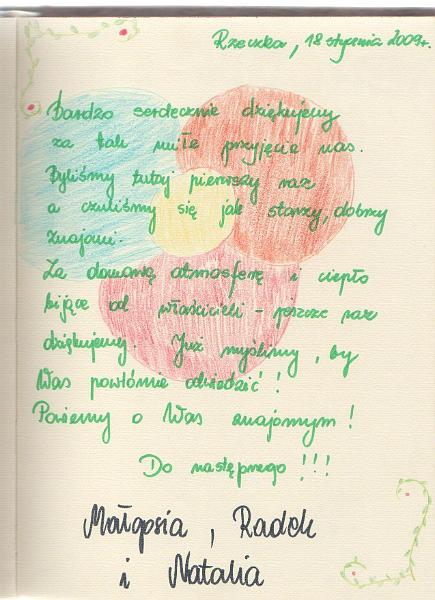 Rzeczka, 18 stycznia 2009r.
Bardzo serdecznie dziękujemy
za tak miłe przyjęcie nas.
Byliśmy tutaj pierwszy raz
a czuliśmy się jak starzy, dobrzy
znajomi.
Za domową atmosferę i ciepło
bijące od właścicieli - jeszcze raz
dziękujemy. Już myślimy, by
Was powtórnie odwiedzić!
Powiemy o Was znajomym!
Do następnego !!!
Małgosia, Radek
i Natalia